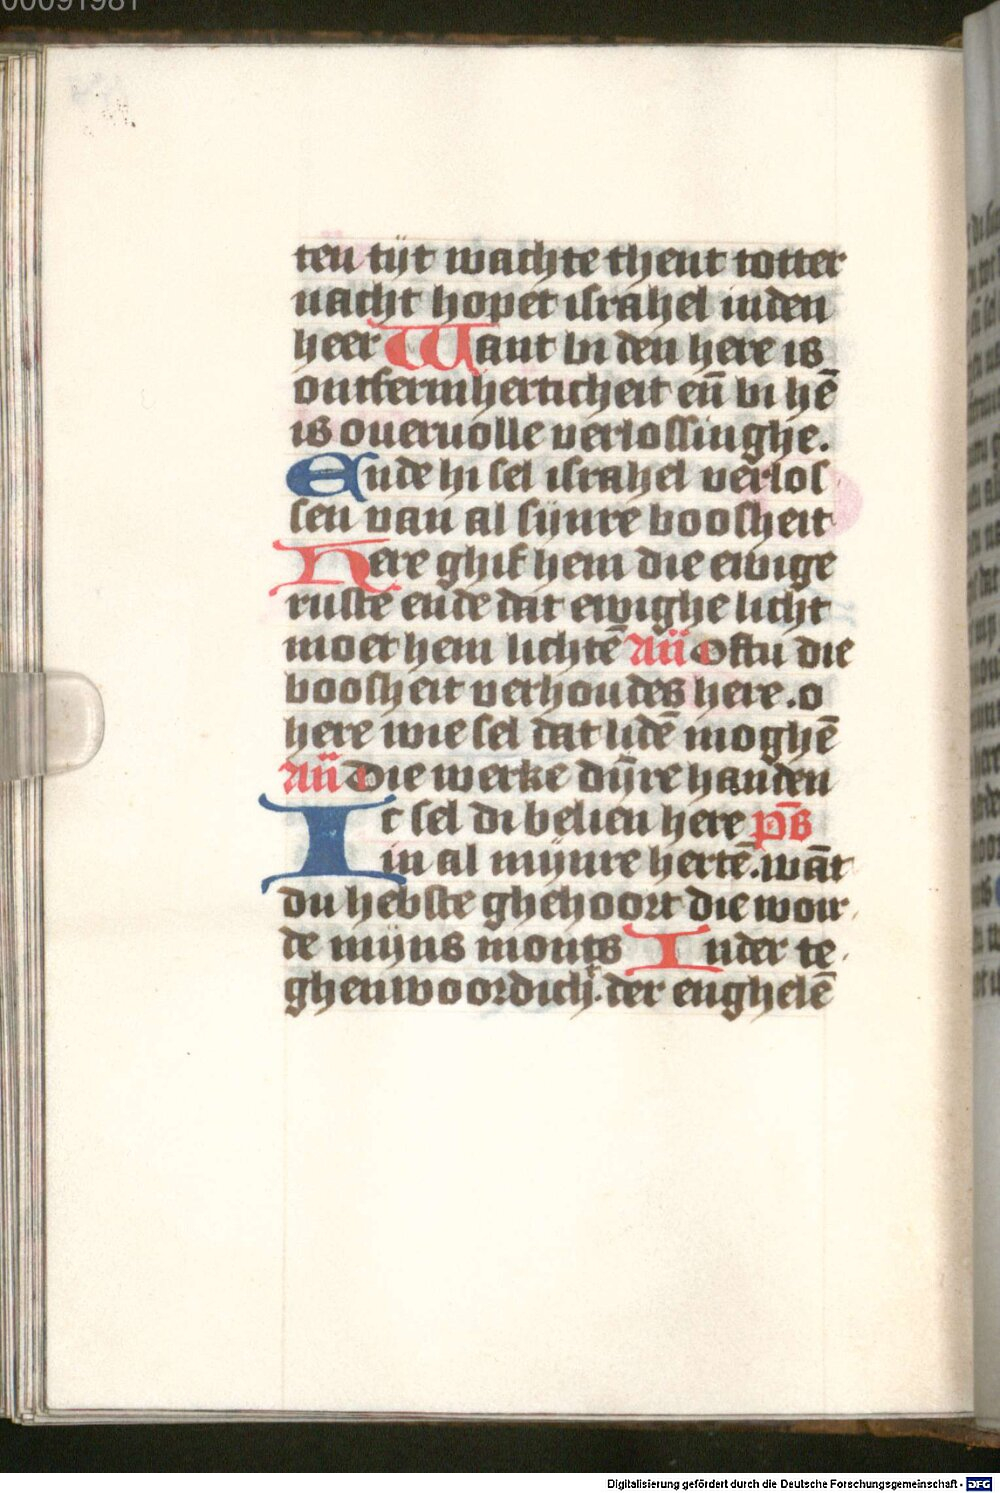 00091981
ten tijt wachte thent totter
nacht hopet israhel inden
heer Want bi den here is
ontfermherticheit eñ bi hē
is oueruolle verlossinghe.
Ende hi sel israhel verlos
sen van al sijnre boosheit
Here ghif hem die ewige
ruste ende dat ewighe licht
moet hem lichtē Añ Oftu die
boosheit verhoudes here. o
here wie sel dat lidē moghē
Añ Die werke dijnre handen
Ic sel di belien here ps
in al mijnre hertē. wāt
du hebste ghehoort die woir
de mijns monts In der te
ghenwoordich. der enghelē
Digitalisierung gefördert durch die Deutsche Forschungsgemeinschaft - DFG